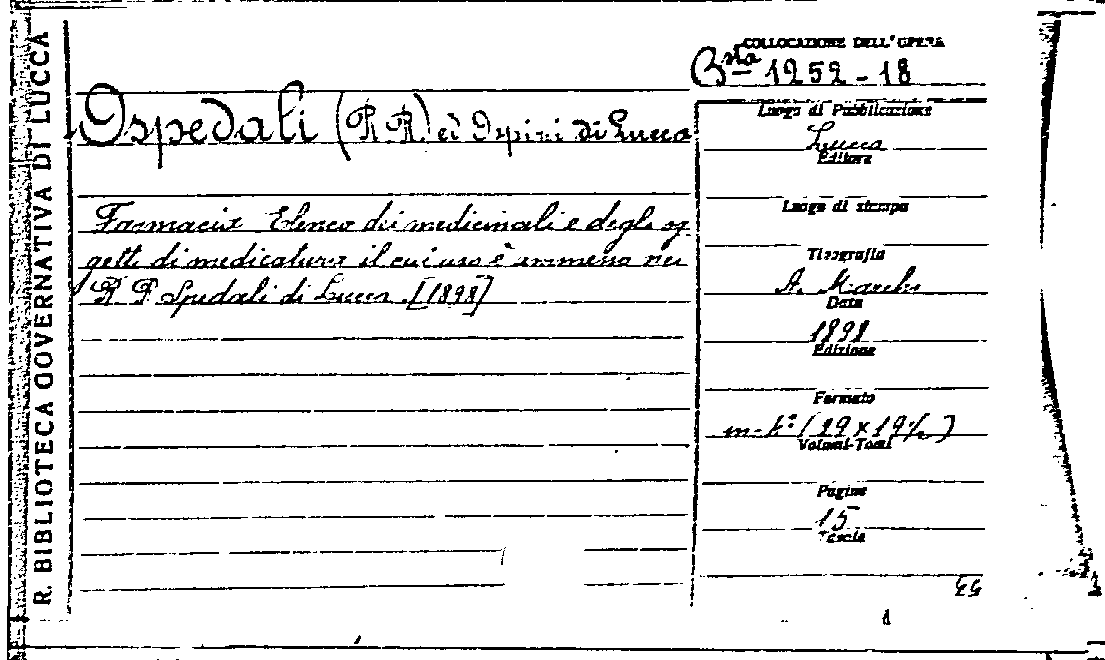 R. BIBLIOTECA GOVERNATIVA DI LUCCA
COLLOCAZIONE DELL'OPERA
Bta 1252-18
Ospedali (R.R.) ed Ospizi di Lucca
Farmacia Elenco dei medicinali e degli og
getti di medicatura il cui uso è ammesso nei
R. R. Spedali di Lucca. [1898]
Luogo di Pubblicazione
Lucca
Editore
Luogo di stampa
Tipografia
A. Marchi
Data
1898
Edizione
Formato
(29 x 19½)
Volumi-Tomi
Pagine
15
Tavole